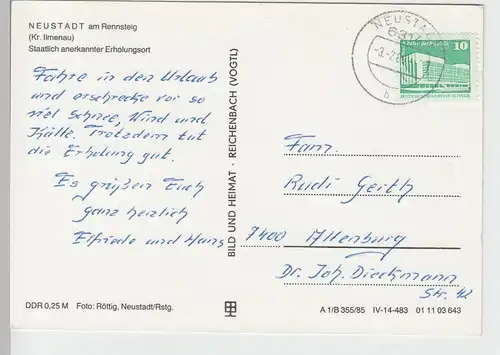 NEUSTADT am Rennsteig
(Kr. Ilmenau)
Staatlich anerkannter Erholungsort
Fahre in den Urlaub
und erschrecke vor so
viel Schnee, Wind und
Kälte. Trotzdem tut
die Erholung gut.
Es grüßen Euch
ganz herzlich
Elfriede und Hans
DDR 0,25 M Foto: Röttig, Neustadt/Rstg.
BILD UND HEIMAT · REICHENBACH (VOGTL)
NEUSTA
b
10
Fam.
Rudi Geith
7400 Altenburg
Dr. Joh. Dieckmann
Str. 42
A 1/B 355/85 IV-14-483 01 11 03 643